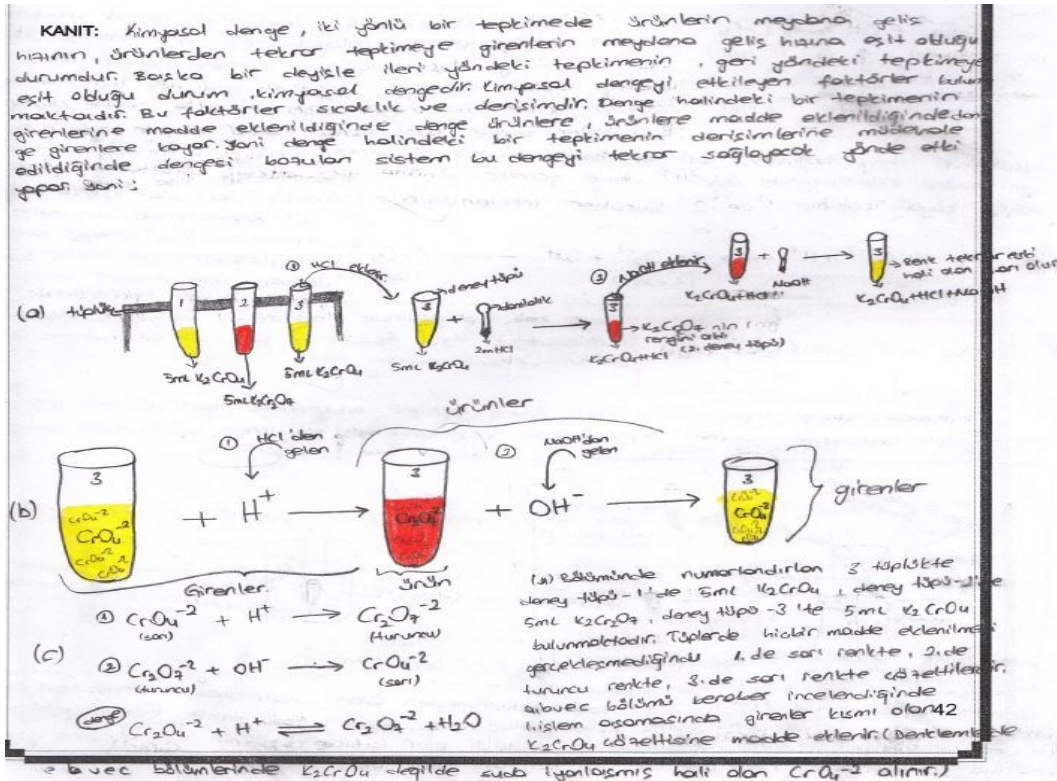 KANIT: Kimyasal denge, iki yönlü bir tepkimede ürünlerin meydana geliş
hızının, ürünlerden tekrar tepkimeye girenlerin meydana geliş hızına eşit olduğu
durumdur. Başka bir deyişle ileri yöndeki tepkimenin, geri yöndeki tepkimeye
eşit olduğu durum, kimyasal dengedir. Kimyasal dengeyi etkileyen faktörler bulun
maktadır. Bu faktörler sıcaklık ve derişimdir. Denge halindeki bir tepkimenin
girenlerine madde eklenildiğinde denge ürünlere, ürünlere madde eklenildiğinde den
ge girenlere kayar. Yani denge halindeki bir tepkimenin derişimlerine müdahale
edildiğinde dengesi bozulan sistem bu dengeyi tekrar sağlayacak yönde etki
yapar. Yani:
(a) tüplük
1 2 3
① HCl eklenir
5mL K2CrO4
5mL K2Cr2O7
5mL K2CrO4
3 deney tüpü
+ damlalık
2mHCl
5mL K2CrO4
② NaOH eklenir
3
K2CrO4+HCl (3. deney tüpü)
3 + NaOH
K2CrO4+HCl
3 Renk tekrar eski
hali olan sarı olur
K2CrO4+HCl+NaOH
ürünler
(b)
3
CrO4-2
CrO4-2
CrO4-2
① HCl'den
gelen
+ H+
3
Cr2O7-2
②
NaOH'dan
gelen
+ OH-
3
CrO4-2
CrO4-2
girenler
Girenler
ürün
(c)
① CrO4-2 + H+ → Cr2O7-2
(sarı) (turuncu)
② Cr2O7-2 + OH- → CrO4-2
(turuncu) (sarı)
denge Cr2O4-2 + H+ ⇌ Cr2O7-2 + H2O
(a) Bölümünde numaralandırılan 3 tüplükte
deney tüpü-1'de 5mL K2CrO4, deney tüpü-2'de
5mL K2Cr2O7, deney tüpü-3'te 5mL K2CrO4
bulunmaktadır. Tüplerde hiçbir madde eklenilmesi
gerçekleşmediğinde 1.de sarı renkte, 2.de
turuncu renkte, 3.de sarı renkte çözeltilerdir.
a,b ve c bölümü beraber incelendiğinde
1.işlem aşamasında girenler kısmı olan 42
K2CrO4 çözeltisine madde eklenir. (Denklemlerde
b ve c bölümlerinde K2CrO4 değilde suda iyonlaşmış hali olan CrO4-2 alınır.)